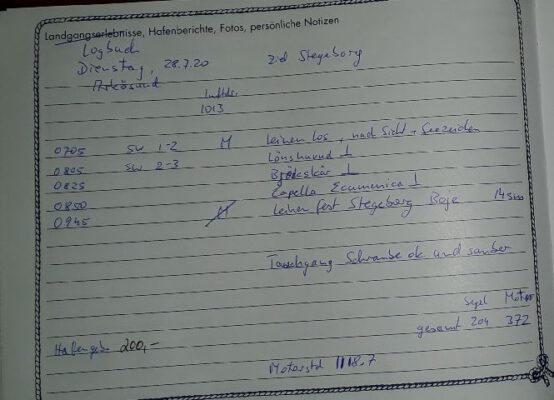 Landgangserlebnisse, Hafenberichte, Fotos, persönliche Notizen
Logbuch
Dienstag, 28.7.20 Ziel Stegeborg
Arkösund
Luftdr.
1013
0705 SW 1-2 M Leinen los, nach Sicht + Seezeichen
0805 SW 2-3 Lönshuvud ⊥
0825 Björkskär ⊥
0850 Capella Ecumenica ⊥
0945 M Leinen fest Stegeborg Boje 14 sm
Tauchgang Schraube ok und sauber
Segel Motor
gesamt 204 372
Hafengeb. 200,-
Motorstd 1118.7